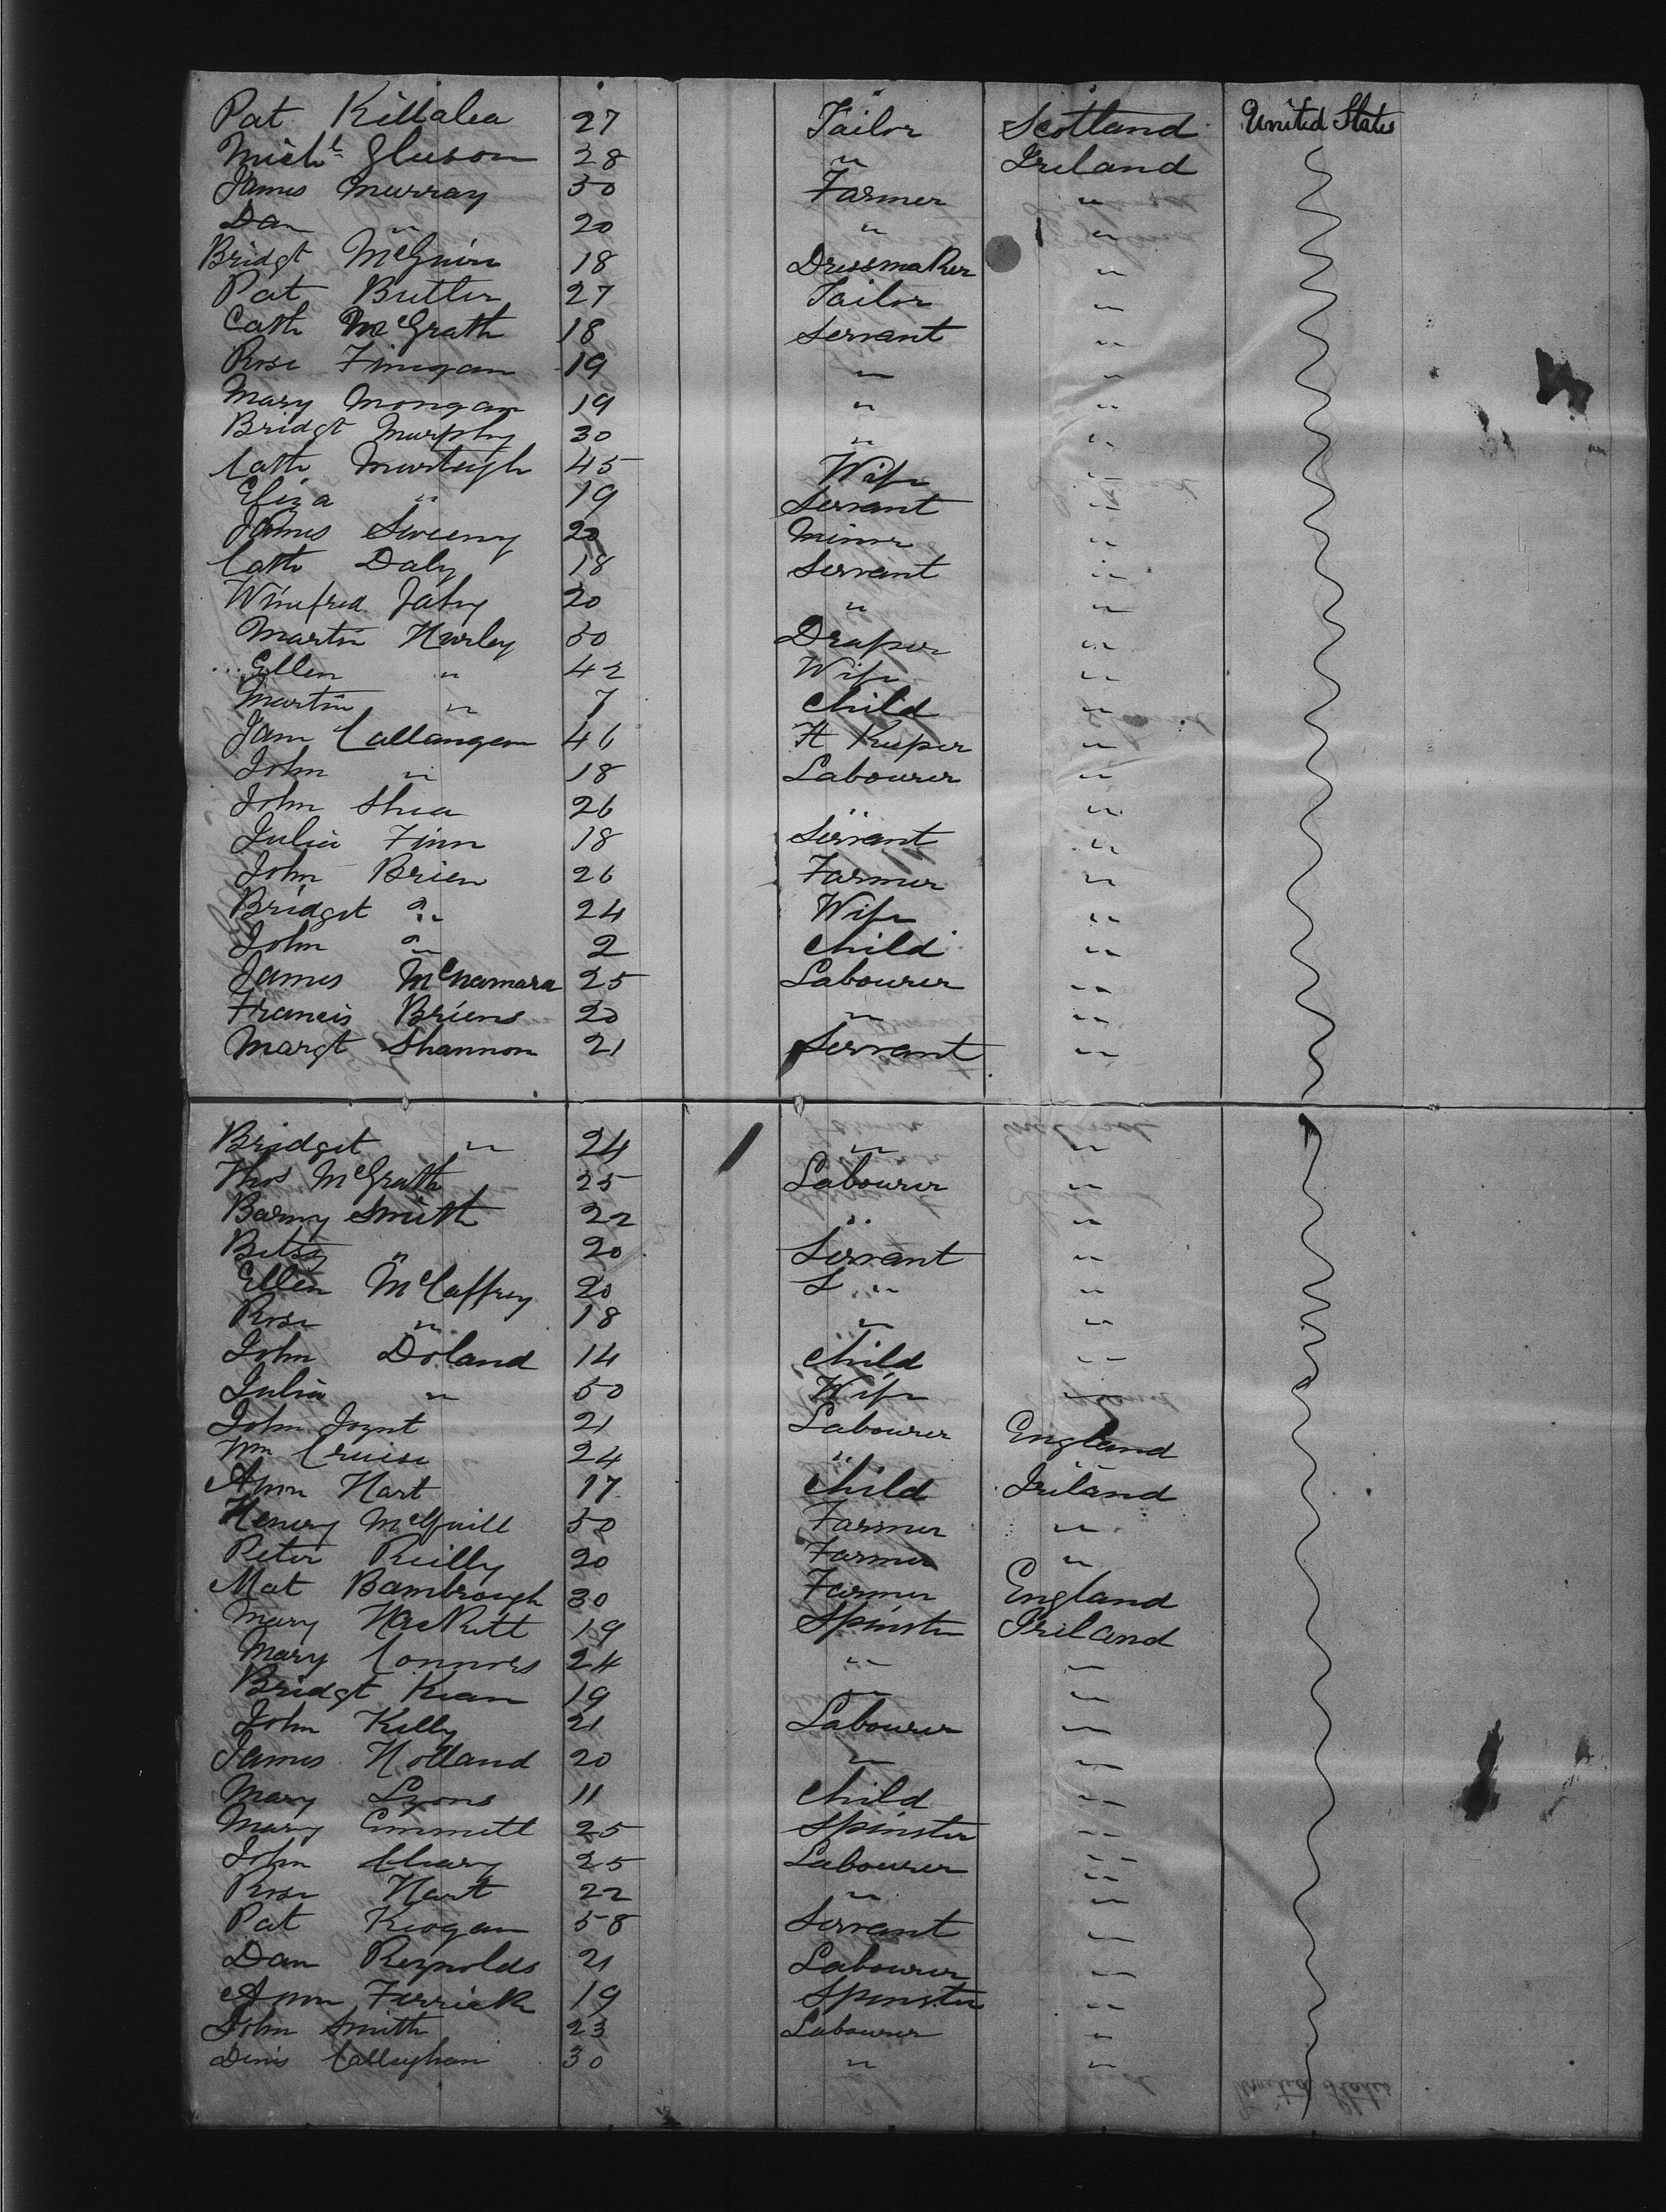 Pat Killalea 27 Tailor Scotland United States
Michl Gleeson 28 " Ireland
James Murray 50 Farmer "
Dan " 20 " "
Bridgt McGuire 18 Dressmaker "
Pat Butler 27 Tailor "
Cath McGrath 18 Servant "
Rose Finigan 19 " "
Mary Mongan 19 " "
Bridgt Murphy 30 " "
Cath Murteigh 45 Wife "
Eliza " 19 Servant "
James Sweeny 20 Miner "
Cath Daly 18 Servant "
Winefred 20 " "
Martin Hurley 50 Draper "
Ellen " 42 Wife "
Martin " 7 Child "
Jam Callangan 46 H Keeper "
John " 18 Labourer "
John Shea 26 " "
Julia Finn 18 Servant "
John Brien 26 Farmer "
Bridget " 24 Wife "
John " 2 Child "
James McNamara 25 Labourer "
Francis Briens 20 " "
Margt Shannon 21 Servant "
Bridget " 24 " "
Thos McGrath 25 Labourer "
Barny Smith 22 " "
Betsy " 20 Servant "
Ellen McCaffrey 20 S " "
Rose " 18 " "
John Doland 14 Child "
Julia " 50 Wife "
John Joynt 21 Labourer England
Wm Cruise 24 " "
Ann Hart 17 Child Ireland
Henery McGuill 50 Farmer "
Peter Reilly 20 Farmer "
Mat Bambrough 30 Farmer England
Mary Hackett 19 Spinster Ireland
Mary Connors 24 " "
Bridgt Kean 19 " "
John Kelly 21 Labourer "
James Holland 20 " "
Mary Lyons 11 Child "
Mary Emmett 25 Spinster "
John Cleary 25 Labourer "
Rose Hart 22 " "
Pat Keogan 58 Servant "
Dan Reynolds 21 Labourer "
Ann Farrick 19 Spinster "
John Smith 23 Labourer "
Denis Calleghan 30 " "